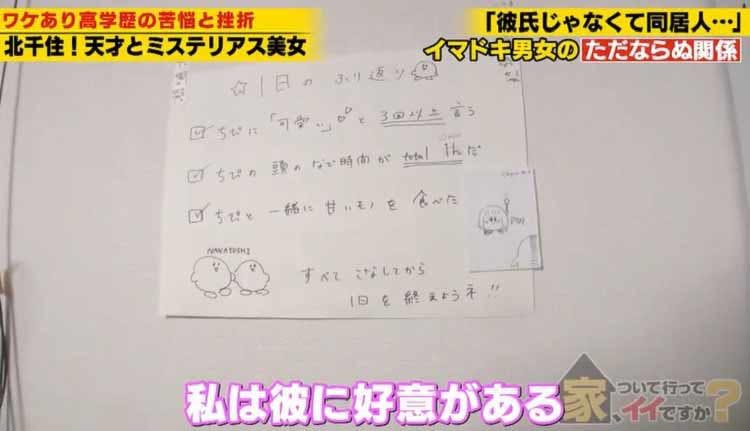 ワケあり高学歴の苦悩と挫折
北千住！天才とミステリアス美女
「彼氏じゃなくて同居人…」
イマドキ男女のただならぬ関係
☆1日のふり返り
☑ ちびに「可愛い」と3回以上言う
☑ ちびの頭のなで時間が total 1hだ
☑ ちびと一緒に甘いモノを食べた
NAKAYOSHI
すべてこなしてから
1日を終えようネ!!
私は彼に好意がある
家、ついて行ってイイですか？